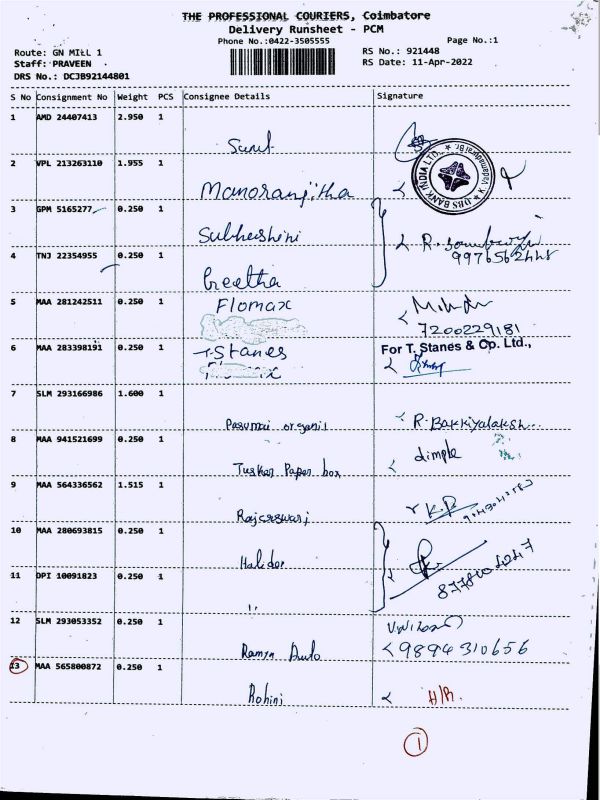 THE PROFESSIONAL COURIERS, Coimbatore
Delivery Runsheet - PCM
Phone No.:0422-3505555
Page No.:1
Route: GN MILL 1
Staff: PRAVEEN
DRS No.: DCJB92144801
RS No.: 921448
RS Date: 11-Apr-2022
S No Consignment No Weight PCS Consignee Details Signature
1 AMD 24407413 2.950 1
Sunil
2 VPL 213263110 1.955 1
Manoranjitha
DBS BANK INDIA LTD.,
3 GPM 5165277 0.250 1
Subhashini
4 TNJ 22354955 0.250 1
Geetha
5 MAA 281242511 0.250 1 Flomax
7200229181
6 MAA 283398191 0.250 1 T-Stanes For T. Stanes & Co. Ltd.,
7 SLM 293166986 1.600 1
Pasumai organil R. Bakkiyalaksh
8 MAA 941521699 0.250 1 dimple
Tusker Paper box
9 MAA 564336562 1.515 1
Rajeswari
10 MAA 280693815 0.250 1
Halidon
11 DPI 10091823 0.250 1
"
12 SLM 293053352 0.250 1
Ramya Auto 9894310656
13 MAA 565800872 0.250 1
Rohini H/R.
1